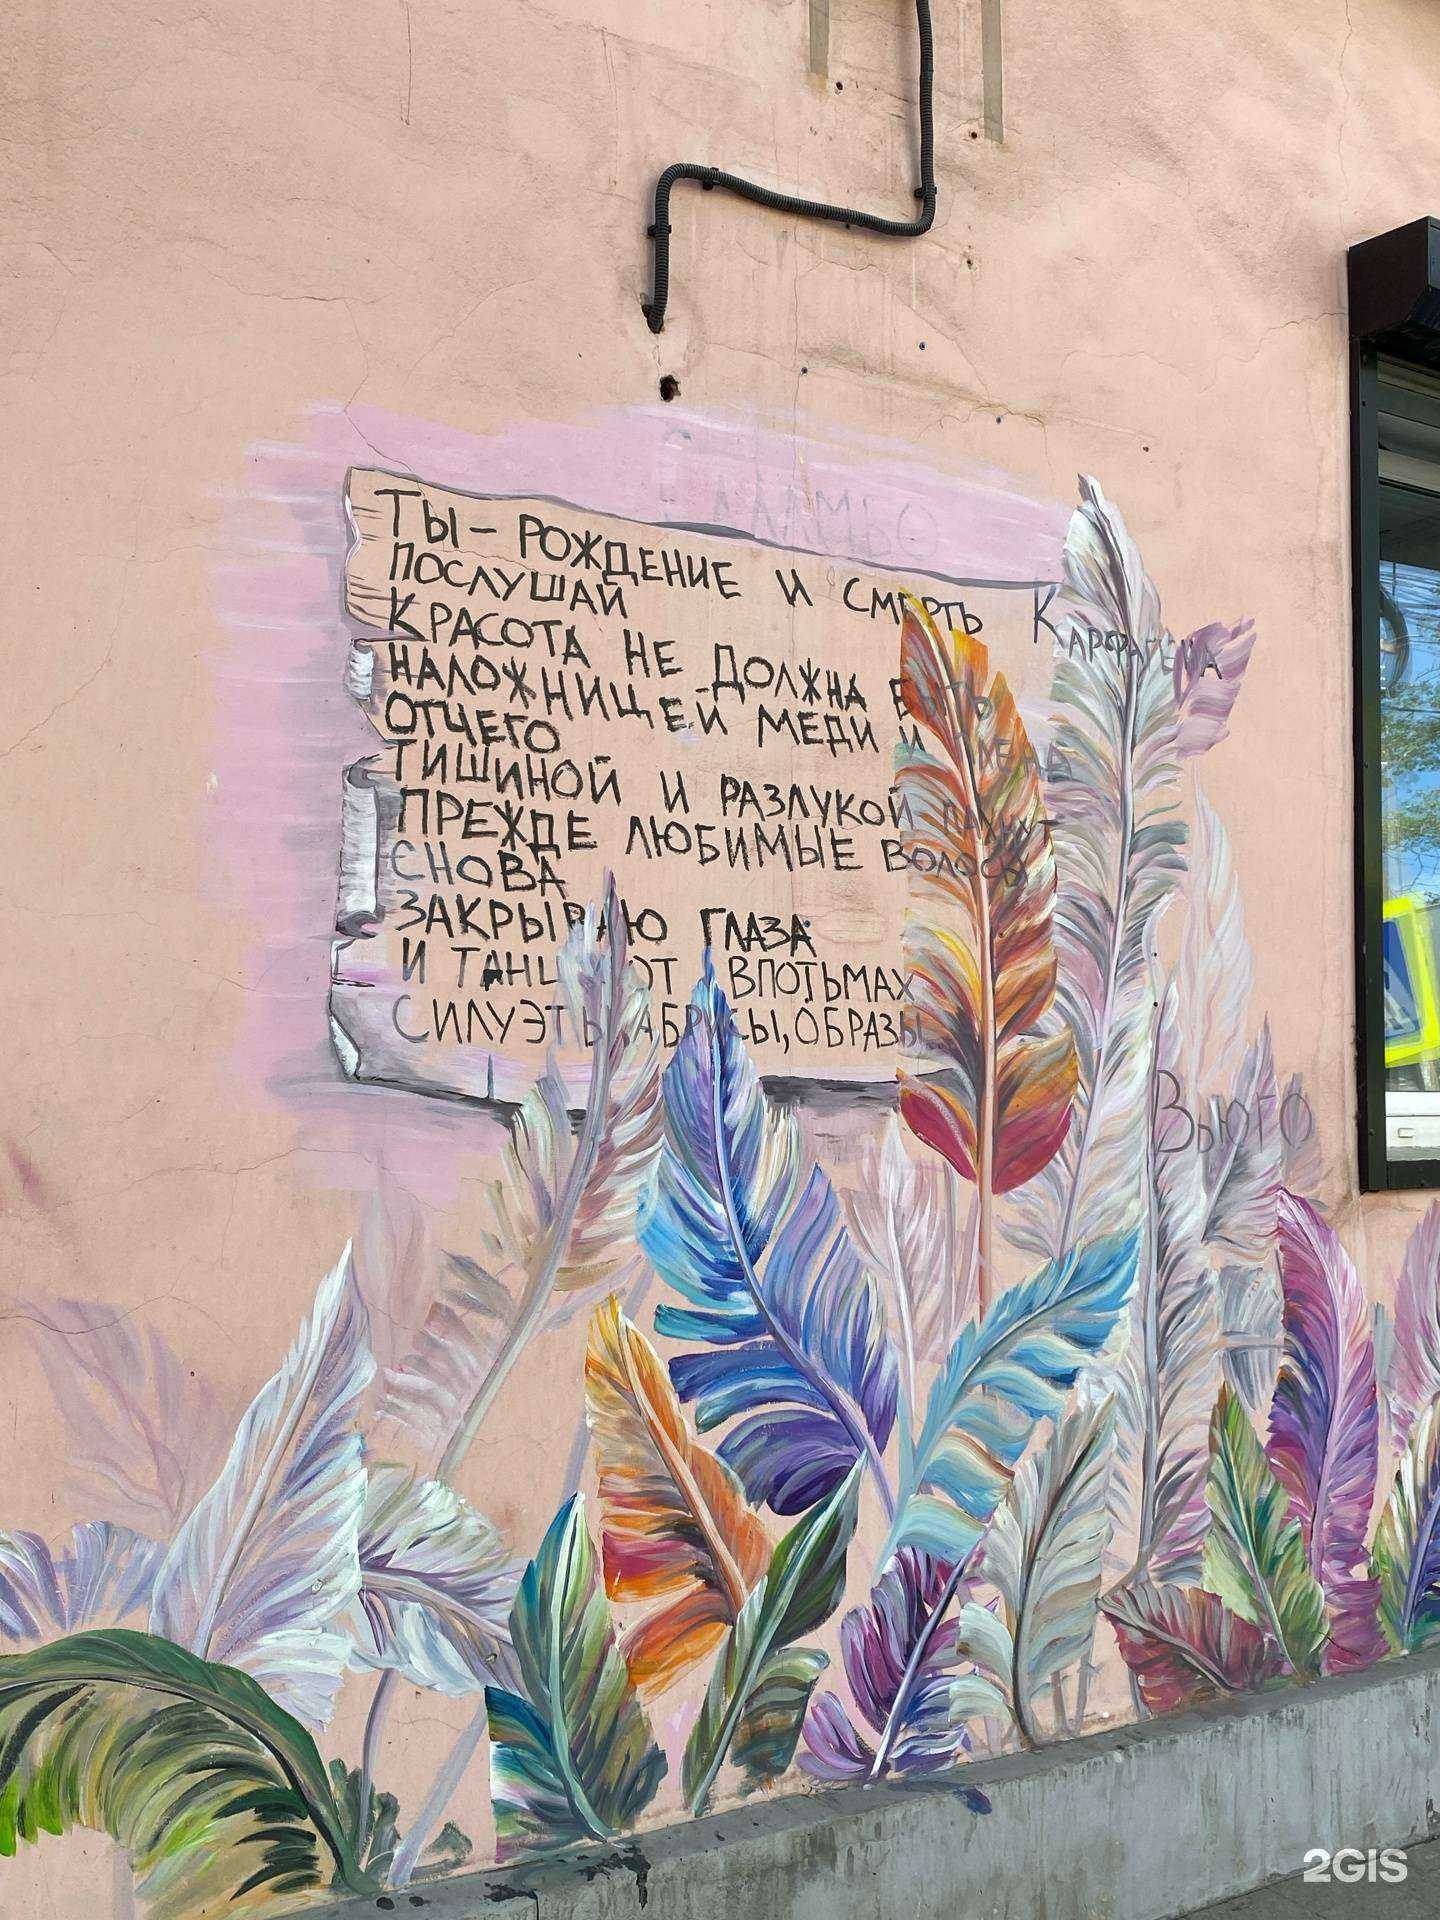 Саламбо
Ты – рождение и смерть Карфагена
Послушай
Красота не должна быть
наложницей меди и
Отчего
тишиной и разлукой
прежде любимые волосы
Снова
закрываю глаза
и танцуют впотьмах
Силуэты, абрисы, образы
Вьюго
2GIS